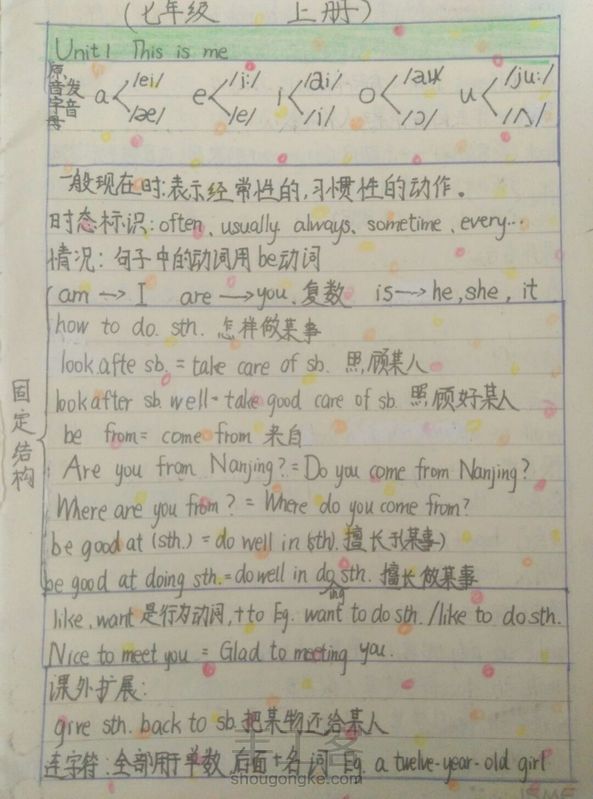 (七年级 上册)
Unit 1 This is me
原音字母发音
a /ei/ /æ/ e /i:/ /e/ i /ai/ /i/ o /əu/ /ɔ/ u /ju:/ /ʌ/
一般现在时:表示经常性的,习惯性的动作。
时态标识:often、usually always、sometime、every…
情况:句子中的动词用be动词
am → I are → you、复数 is → he, she, it
固定结构
how to do. sth. 怎样做某事
look afte sb. = take care of sb. 照顾某人
look after sb. well = take good care of sb. 照顾好某人
be from = come from 来自
Are you from Nanjing? = Do you come from Nanjing?
Where are you from? = Where do you come from?
be good at (sth.) = do well in (sth). 擅长于(某事)
be good at doing sth. = do well in do sth. 擅长做某事
ing
like、want 是行为动词,+to Eg. want to do sth. / like to do sth.
Nice to meet you = Glad to meeting you.
课外扩展:
give sth. back to sb. 把某物还给某人
连字符:全部用于单数 后面+名词 Eg. a twelve-year-old girl
shougongke.com